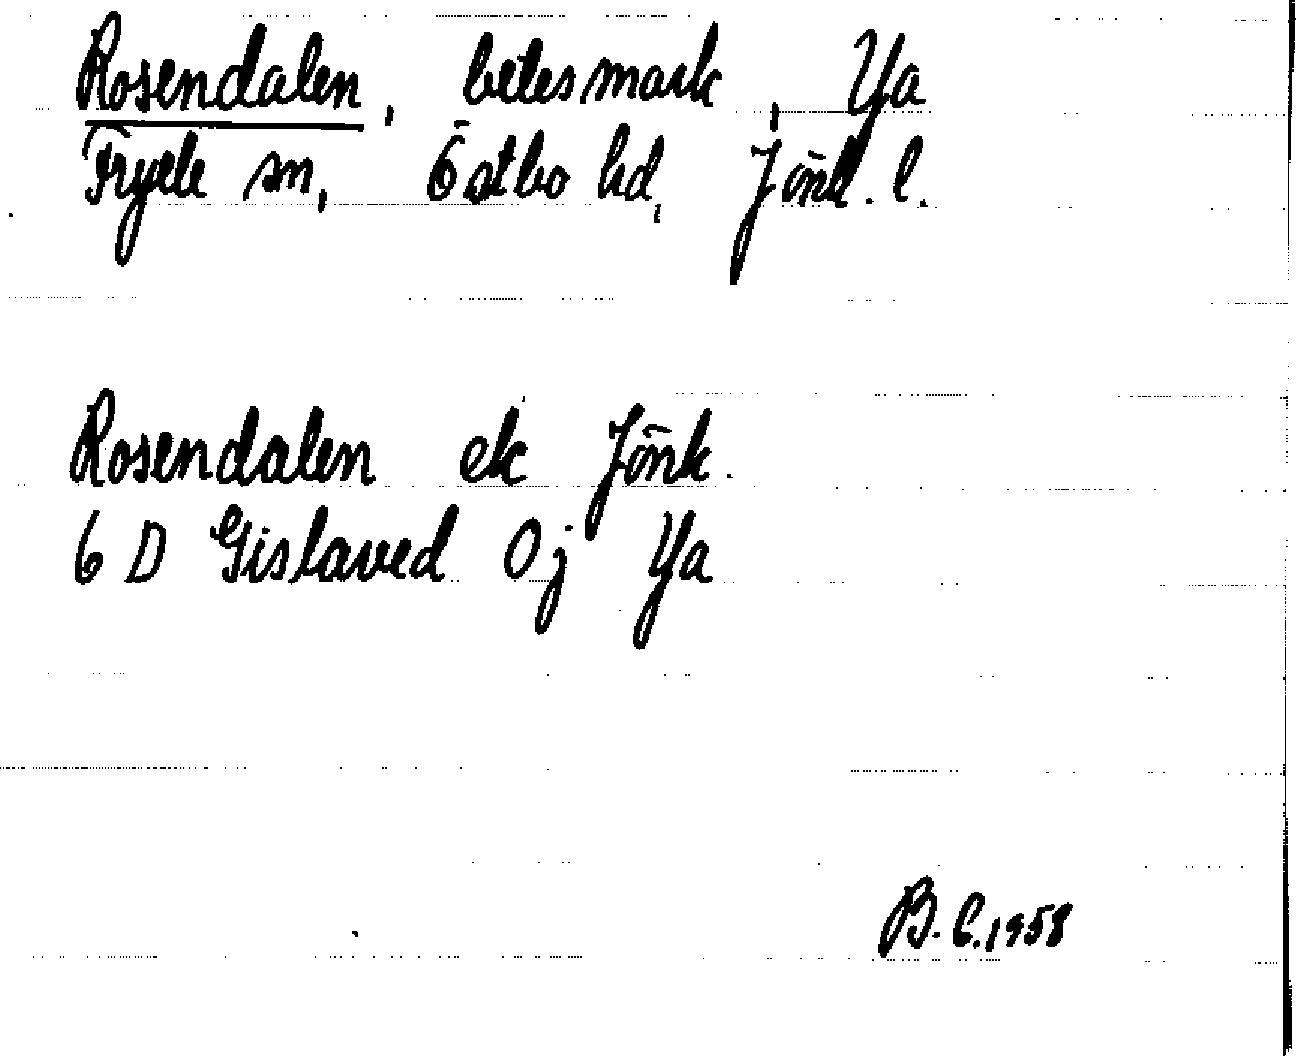 Rosendalen, betesmark, Ya
Fryele sn, Östbo hd, Jönk. l.
Rosendalen ek Jönk.
6 D Gislaved 0j Ya
B. E. 1958